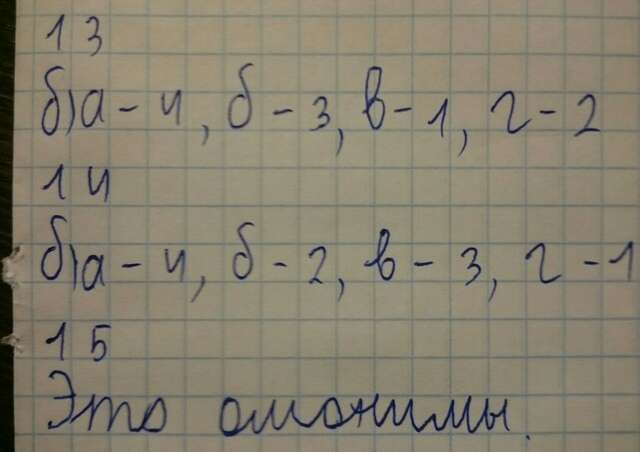 13
б) а - 4, б - 3, в - 1, г - 2
14
б) а - 4, б - 2, в - 3, г - 1
15
Это омонимы.